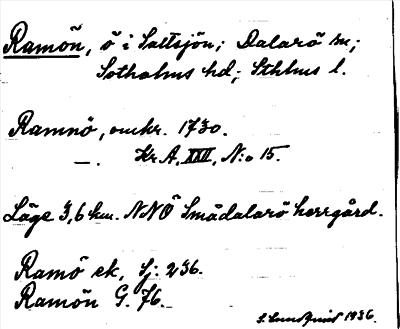 Ramön, ö i Saltsjön; Dalarö sn;
Sotholms hd; Sthlms l.
Ramnö, omkr. 1730.
—. Kr. A, XXII, N:o 15.
Läge 3,6 km. NNÖ Smådalarö herrgård.
Ramö ek, Sj: 236.
Ramön G. 76.
S. Lundquist 1936.